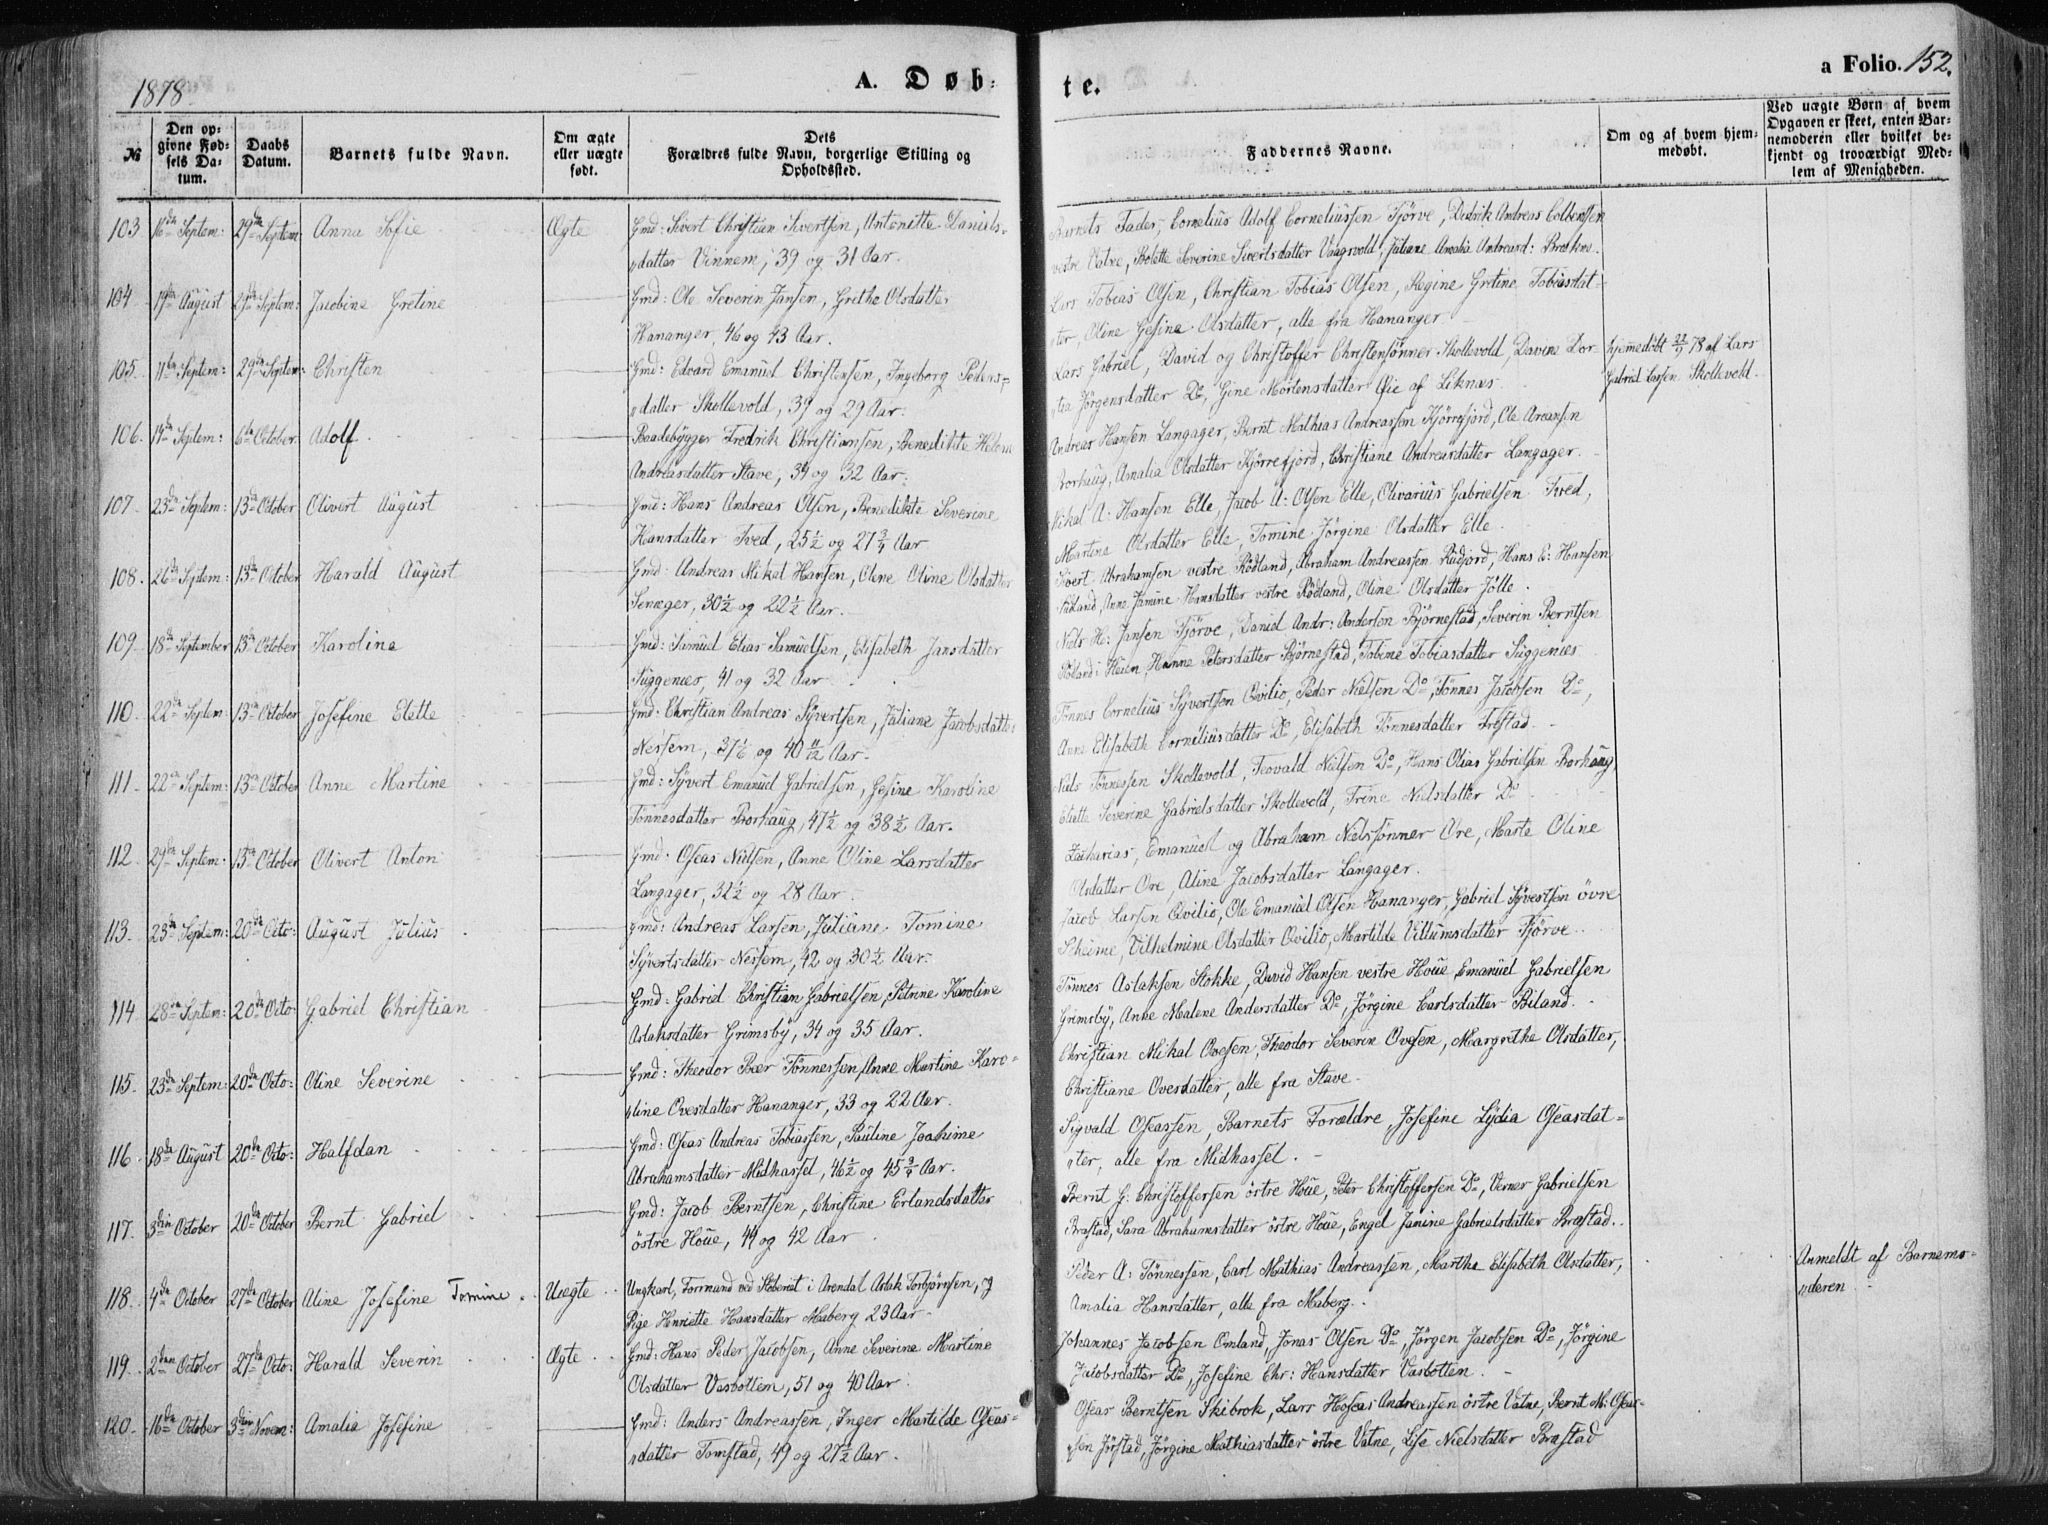 1878.
A. Døb-
te.
a Folio. 152.
№
Den opgivne Fødsels Datum.
Daabs Datum.
Barnets fulde Navn.
Om ægte eller uægte født.
Dets Forældres fulde Navn, borgerlige Stilling og Opholdssted.
Faddernes Navne.
Om og af hvem hjemmedøbt.
Ved uægte Børn af hvem Opgaven er skeet, enten Barnemoderen eller hvilket bekjendt og troværdigt Medlem af Menigheden.
103 16de Septem: 29de Septem Anna Sofie Ægte Gmd: Sivert Christian Sivertsen, Antonette Daniels-
"datter Vinnem, 39 og 31 Aar.
Barnets Fader, Cornelius Adolf Corneliussen Fjörve, Didrik Andreas
vestre Vatne, Bolette Severine Sivertsdatter Vaagsvold, Juliane Amalia Andread: Brekne.
104 19de August 29de Septem: Jacobine Gretine Gmd: Ole Severin Jansen, Grethe Olsdatter
Hananger, 46 og 43 Aar.
Lars Tobias Olsen, Christian Tobias Olsen, Regine Gretine Tobiasdat-
"ter, Oline Gesine Olsdatter, alle fra Hananger.
105. 11te Septem: 29de Septem: Christen Gmd: Edvard Emanuel Christensen, Ingeborg Peders-
"datter Skollevold, 39 og 29 Aar:
Lars Gabriel, David og Christoffer Christensönner Skollevold, Davine Dor-
"tea Jörgensdatter Do, Gine Mortensdatter Øie af Liknæs.
hjemmedöbt 22/9 78 af Lars
Gabriel Larsen Skollevold.
106. 14de Septem: 6te October. Adolf. Baadebygger Fredrik Christiansen, Benedikte Helene
Andreasdatter Stave, 34 og 32 Aar:
Andreas Hansen Langager, Bernt Mathias Andreassen Kjörrefjord, Ole
Borhaug, Amalia Olsdatter Kjörrefjord, Christiane Andreasdatter Langager.
107. 23de Septem: 13de October Olivert August Gmd: Hans Andreas Olsen, Benedikte Severine
Hansdatter Tved, 25½ og 27¾ Aar
Mikal A: Hansen Elle, Jacob A: Olsen Elle, Olivarius Gabrielsen Tved,
Martine Olsdatter Elle, Tomine Jörgine Olsdatter Elle.
108. 26de Septem: 13de October Harald August Gmd: Andreas Mikal Hansen, Olene Oline Olsdatter
Senæger, 30½ og 22½ Aar.
Sivert Abrahamsen vestre Rödland, Abraham Andreassen Rudjord, Hans E: Hansen
Rödland, Anne Jamine Hansdatter vestre Rödland, Oline Olsdatter Jölle.
109. 18de September 13de October Karoline Gmd: Samuel Elias Samuelsen, Elisabeth Jansdatter
Suggenæs, 41 og 32 Aar
Niels H: Jansen Fjörve, Daniel Andr: Andersen Björnestad, Severin Berntsen
Rödland i Heien, Hanne Petersdatter Björnestad, Tobine Tobiasdatter Suggenæs
110. 22de Septem 13de October Josefine Elette Gmd: Christian Andreas Syvertsen, Juliane Jacobsdatter
Nessem, 37 1/6 og 40 11/12 Aar.
Tönnes Cornelius Syvertsen Qvilio, Peder Nielsen Do, Tönnes Jacobsen Do,
Anne Elisabeth Corneliusdatter Do, Elisabeth Tönnesdatter Frestad.
111. 22de Septem: 13de October Anne Martine Gmd: Syvert Emanuel Gabrielsen, Gesine Karoline
Tönnesdatter Borhaug, 47½ og 38½ Aar.
Niels Tönnessen Skollevold, Teovald Nielsen Do, Hans Olias Gabrielsen Borhaug,
Elette Severine Gabrielsdatter Skollevold, Trine Nielsdatter Do
112 29de Septem: 13de October Olivert Anton Gmd: Oseas Nielsen, Anne Oline Larsdatter
Langager, 32½ og 28 Aar.
Zacharias, Emanuel og Abraham Nielssönner Ore, Marte Oline
Olsdatter Ore, Aline Jacobsdatter Langager.
113. 23de Septem: 20de Octo: August Julius Gmd: Andreas Larsen, Juliane Tomine
Syvertsdatter Nessem, 42 og 30½ Aar.
Jacob Larsen Qvilio, Ole Emanuel Olsen Hananger, Gabriel Syvertsen övre
Skeime, Vilhelmine Olsdatter Qvilio, Martilde Villumsdatter Fjörve.
114 28de Septem: 20de Octo: Gabriel Christian Gmd: Gabriel Christian Gabrielsen, Petrine Karoline
Aslaksdatter Grimsby, 34 og 35 Aar.
Tönnes Aslaksen Stokke, David Hansen vestre Houe, Emanuel Gabrielsen
Grimsby, Anne Malene Andersdatter Do, Jörgine Carlsdatter Biland.
115. 23de Septem: 20de Octo: Oline Severine Gmd: Theodor Beer Tönnessen, Anne Martine Karo-
"line Ovesdatter Hananger, 33 og 22 Aar.
Christian Mikal Ovesen, Theodor Severin Ovesen, Margrethe Olsdatter,
Christiane Ovesdatter, alle fra Stave.
116. 18de August 20de Octo: Halfdan Gmd: Oseas Andreas Tobiassen, Pauline Joakime
Abrahamsdatter Midhassel, 46½ og 45¾ Aar.
Sigvald Oseassen, Barnets Forældre, Josefine Lydia Oseasdat-
"ter, alle fra Midhassel.
117. 3die October 20de October Bernt Gabriel Gmd: Jacob Berntsen, Christine Erlandsdatter
östre Houe, 44 og 42 Aar
Bernt G: Christoffersen östre Houe, Peter Christoffersen Do, Verner Gabrielsen
Bræstad, Sara Abrahamsdatter östre Houe, Engel Jamine Gabrielsdatter Bræstad.
118. 4de October 27de October Aline Josefine Tomine Uægte Ungkarl, Formand ved Støberiet i Arendal Aslak Torbjörnsen, og
Pige Henriette Hansdatter Maberg 23 Aar
Peder A: Tönnessen, Carl Mathias Andreassen, Marthe Elisabeth Olsdatter,
Amalia Hansdatter, alle fra Maberg.
Anmeldt af Barnemo-
"deren
119. 2den October 27de Octo: Harald Severin Ægte Gmd: Hans Peder Jacobsen, Anne Severine Martine
Olsdatter Vasbotten, 51 og 40 Aar.
Johannes Jacobsen Omland, Jonas Olsen Do, Jörgen Jacobsen Do, Jörgine
Jacobsdatter Do, Josefine Chr: Hansdatter Vasbotten.
120. 16de October 3die Novem: Amalia Josefine Gmd: Anders Andreassen, Inger Martilde Oseas-
"datter Tomstad, 49 og 27½ Aar.
Oseas Berntsen Skibrok, Lars Hoseas Andreassen östre Vatne, Bernt M: Oseas-
"sen Jörstad, Jörgine Mathiasdatter östre Vatne, Lise Nielsdatter Bræstad